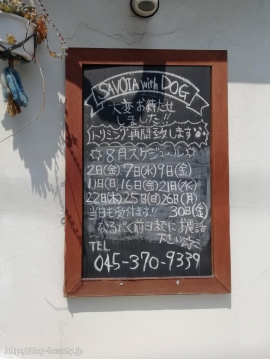 SAVOIA with DOG
大変お待たせ
しました!!
トリミング再開致します
☆8月スケジュール☆
2日(金)7日(水)9日(金)
11日(日)16日(金)21日(水)
22日(木)25日(日)26日(月)
当日も受付ます!! 30日(金)
なるべく前日までにお電話
下さい
TEL
045-370-9339